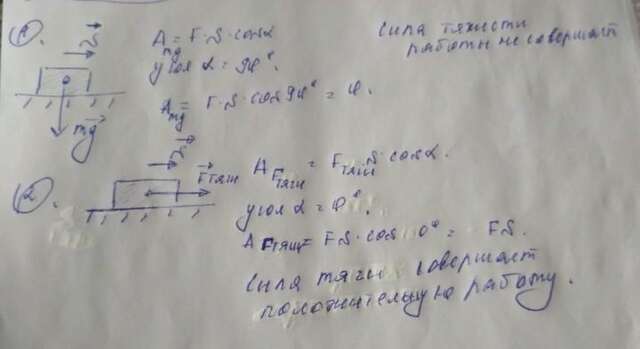 1.
v
mg
A mg = F·S·cosα
угол α = 90°.
A mg = F·S·cos90° = 0.
сила тяжести
работы не совершает
2.
v
Fтяги
A Fтяги = Fтяги S·cosα.
угол α = 0°.
A Fтяги = FS·cos 0° = FS.
Сила тяги совершает
положительную работу.